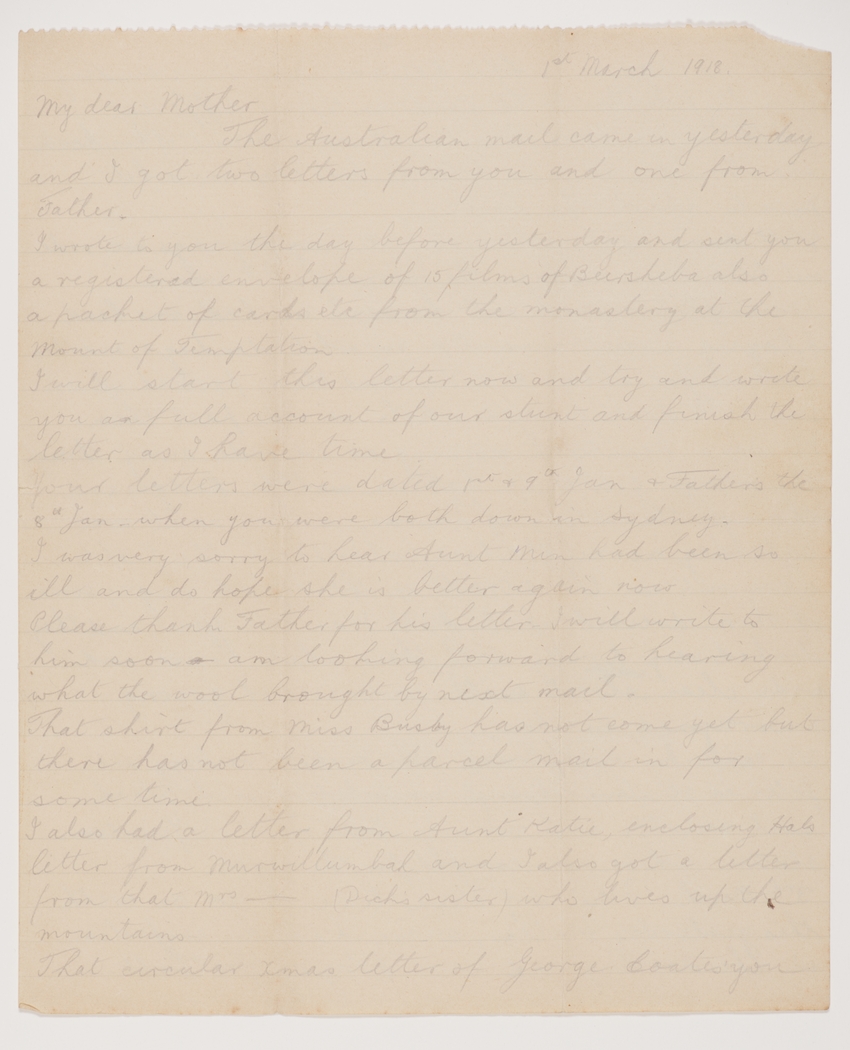 1st March 1918.
My dear Mother
The Australian mail came in yesterday
and I got two letters from you and one from
Father.
I wrote to you the day before yesterday and sent you
a registered envelope of 15 films of Beersheba also
a packet of cards etc from the monastery at the
Mount of Temptation
I will start this letter now and try and write
you a full account of our stunt and finish the
letter as I have time
Your letters were dated 1st & 9th Jan & Fathers the
8th Jan. when you were both down in Sydney.
I was very sorry to hear Aunt Min had been so
ill and do hope she is better again now
Please thank Father for his letter I will write to
him soon am looking forward to hearing
what the wool brought by next mail.
That shirt from Miss Busby has not come yet but
there has not been a parcel mail in for
some time.
I also had a letter from Aunt Katie, enclosing Hals
letter from Murwillumbah and I also got a letter
from that Mrs — (Dicks sister) who lives up the
mountains
That circular Xmas letter of George Coates you